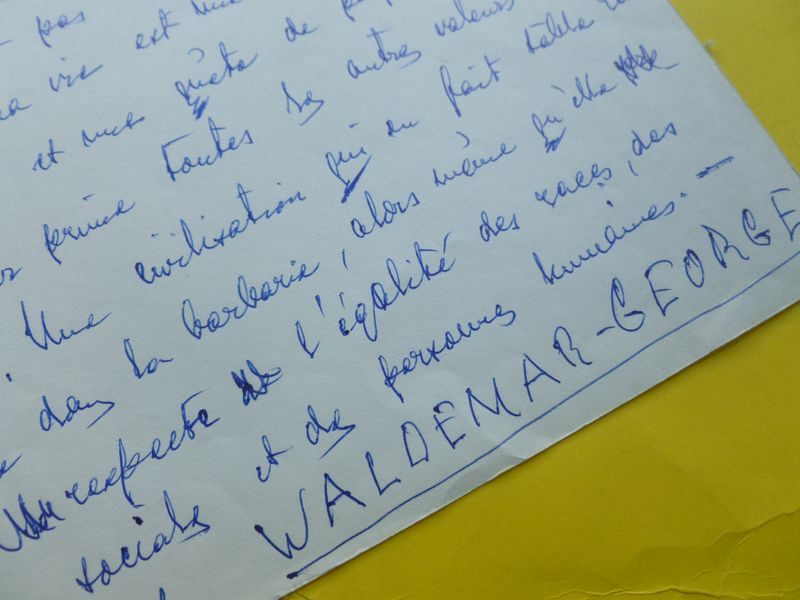 pas
vie est une
et une quête de
prime toutes les autres valeurs
Une civilisation qui en fait table
dans la barbarie, alors même qu'elle
respecte l'égalité des races, des
sociales et des personnes humaines. —
WALDEMAR-GEORGE